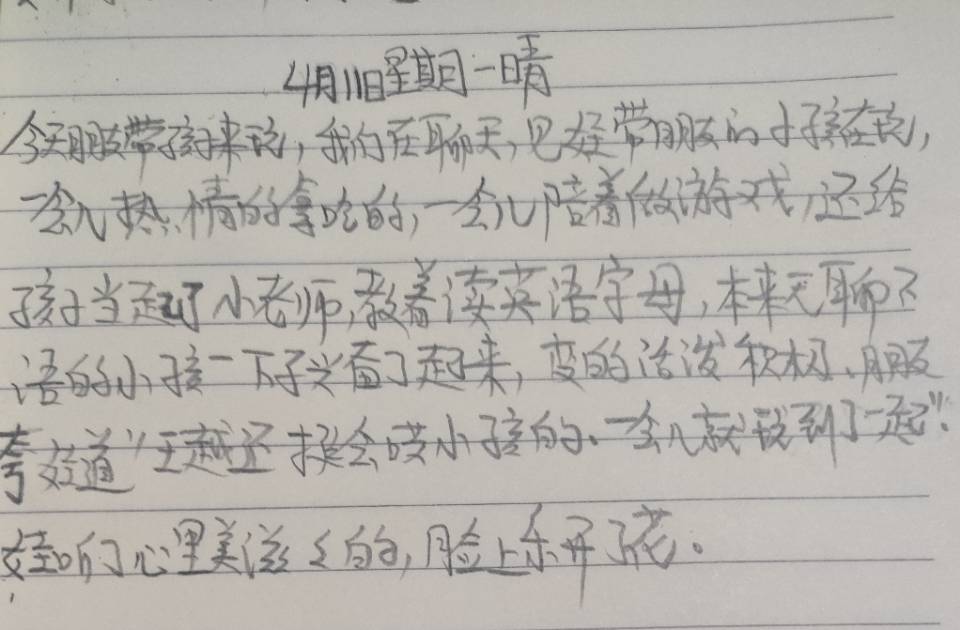 4月11日星期一晴
今天朋友带孩子来玩，我们在聊天，见娃带朋友的小孩在玩，
一会儿热情的拿吃的，一会儿陪着做游戏，还给
孩子当起了小老师，教着读英语字母，本来无聊不
语的小孩一下子兴奋了起来，变的活泼积极、朋友
夸娃道"王越还挺会哄小孩的、一会儿就玩到了一起"。
娃听了心里美滋々的，脸上乐开了花。